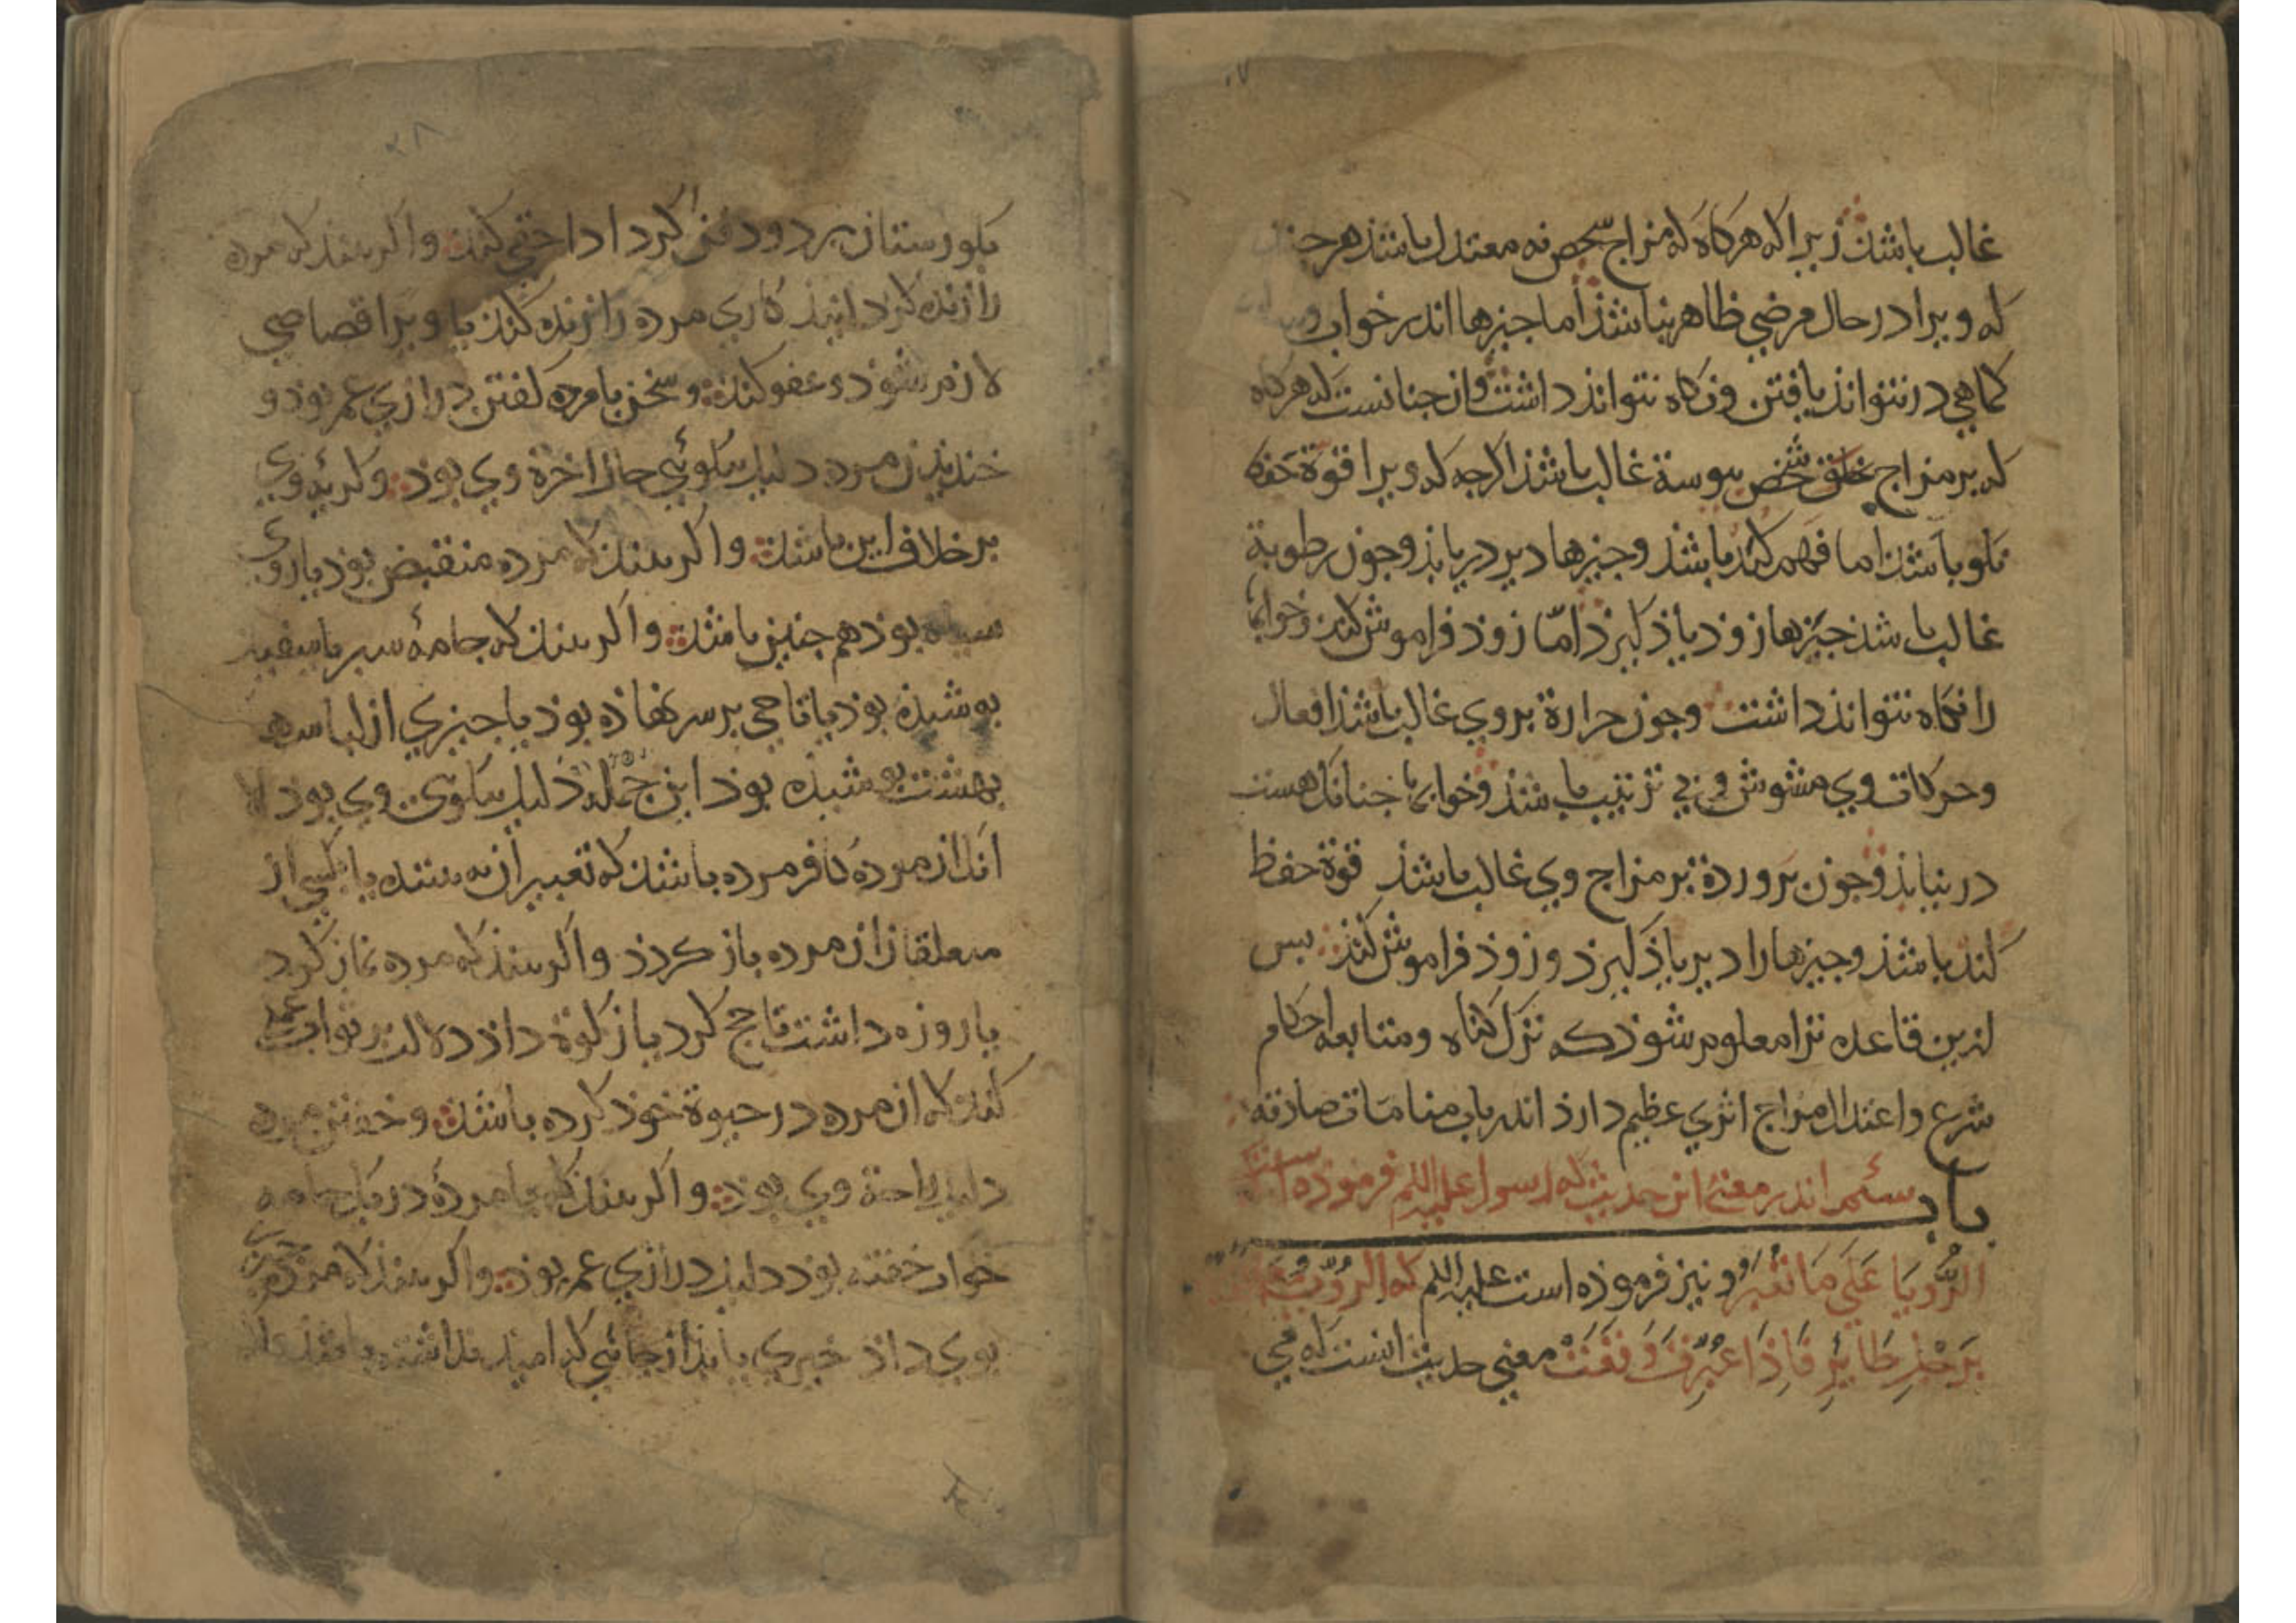 غالب باشذ زیرا که هرکاه که مزاج شخص نه معتدل باشذ هرجند
که ویرا در حال مرضی ظاهر نباشذ اما جیزها اندر خواب
کماهی در نتواند یافتن ونکاه نتواند داشت وان جنانست که هرکاه
که بر مزاج شخص بیوسته غالب باشذ اکرجه که ویرا قوة حفظ
نکو باشذ اما فهم کند باشذ وجیزها دیر دریابذ وجون رطوبة
غالب باشذ جیزها زوذ یاذ کیرذ امّا زوذ فراموش کند وخوابها
را نکاه نتواند داشت وجون حرارة بروی غالب باشذ افعال
وحرکات وی مشوش وبی ترتیب باشذ وخوابها جنانک هست
در نیابذ وجون برودة بر مزاج وی غالب باشذ قوة حفظ
کند باشذ وجیزها را دیر یاذ کیرذ و زوذ فراموش کند بس
ازین قاعده ترا معلوم شوذ که ترک کناه ومتابعه احکام
شرع واعتدال مزاج اثری عظیم دارذ اندر باب منامات صادقه
باب سئم اندر معنی این حدیث که رسول علیه السلم فرموذه است
الرُّویَا عَلَی مَا تُعَبَّرُ و نیز فرموذه است علیه السلم که الرُّویَا
بِرِجْلِ طَائِرٍ فَاِذَا عُبِّرَتْ وَقَعَتْ معنی حدیث انست که می
بکورستان برد و دفن کرد اداء حقی کند واکر بیند که مرده
را زنده کرد انید کاری مرده را زنده کند یا ویرا قصاصی
لازم شوذ و عفو کند وسخن با مرده کفتن درازی عمر بوذ و
خندیذن مرده دلیل نیکوئی حال اخرة وی بوذ وکریهٔ وی
بر خلاف این باشذ واکر بیند که مرده منقبض بوذ یا روی
سیاه بوذ هم جنین باشذ واکر بیند که جامهٔ سبز یا سفید
بوشیذه بوذ یا تاجی بر سر نهاذه بوذ یا جیزی از لباسهاء
بهشت بوشیذه بوذ این جمله دلیل نیکوی وی بوذ الا
انک از مردهٔ کافر مرده باشذ که تعبیر ان نه بینند یا بکسی از
متعلقان ان مرده باز کردذ واکر بیند که مرده نماز کرد
یا روزه داشت یا حج کرد یا زکوة داذ دلالت بر ثواب عمل
کند که ان مرده در حیوة خوذ کرده باشذ وخفتن مرده
دلیل راحة وی بوذ واکر بیند که با مردهٔ در یک جامه
خواب خفته بوذ دلیل درازی عمر بوذ واکر بیند که مرده جیزی
بوی داذ خیری یابذ از جائی که امید نداشته باشذ